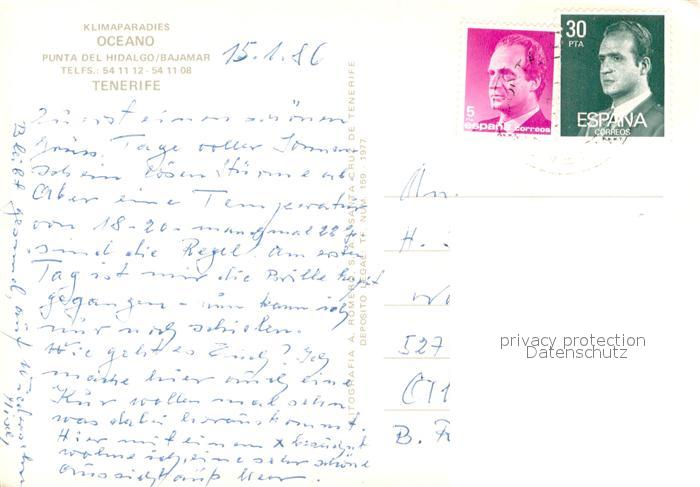 KLIMAPARADIES
OCEANO
PUNTA DEL HIDALGO/BAJAMAR
TELFS.: 54 11 12 - 54 11 08
TENERIFE
15.1.86
Zuerst einen schönen
Gruss. Tage voller Sonnen
schein lösen Stürme ab.
Aber eine Temperatur
von 18-20- manchmal 22
sind die Regel. Am ersten
Tag ist mir die Brille
gegangen - nun kann ich
nur noch schielen.
Wie geht es Euch? Ich
mache hier auch eine
Kur wollen mal sehn
was dabei herauskommt.
Hier mit einem x
wohne ich, eine sehr schöne
Aussicht aufs Meer.
Bleibt gesund, auf Wiedersehn
FOTOGRAFIA A. ROMERO, S. A. SANTA CRUZ DE TENERIFE
DEPOSITO LEGAL TF. NUM. 159 - 1977
5
españa correos
30
PTA
ESPAÑA
CORREOS
An
H.
527
B.
privacy protection
Datenschutz